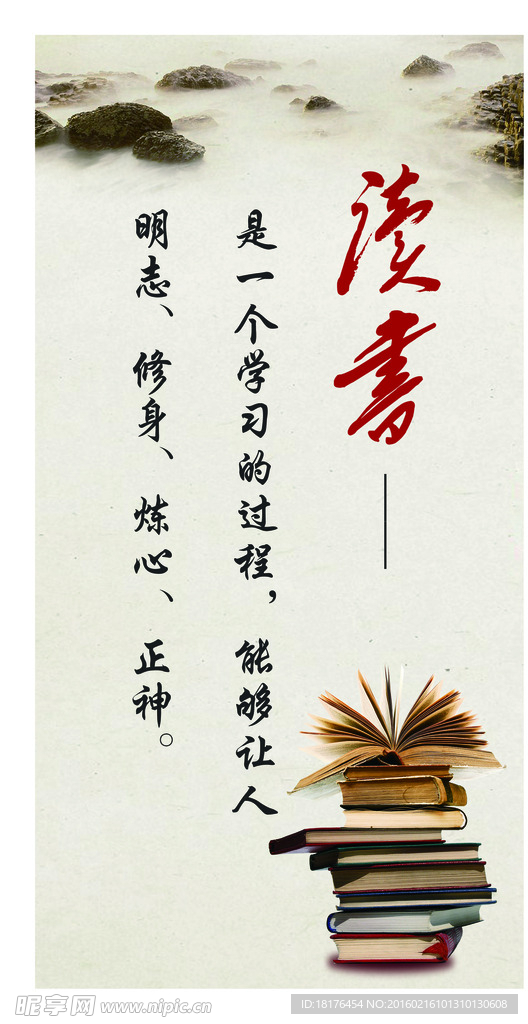 读书——
是一个学习的过程，能够让人
明志、修身、炼心、正神。
昵享网 www.nipic.cn
ID:18176454 NO:20160216101310130608